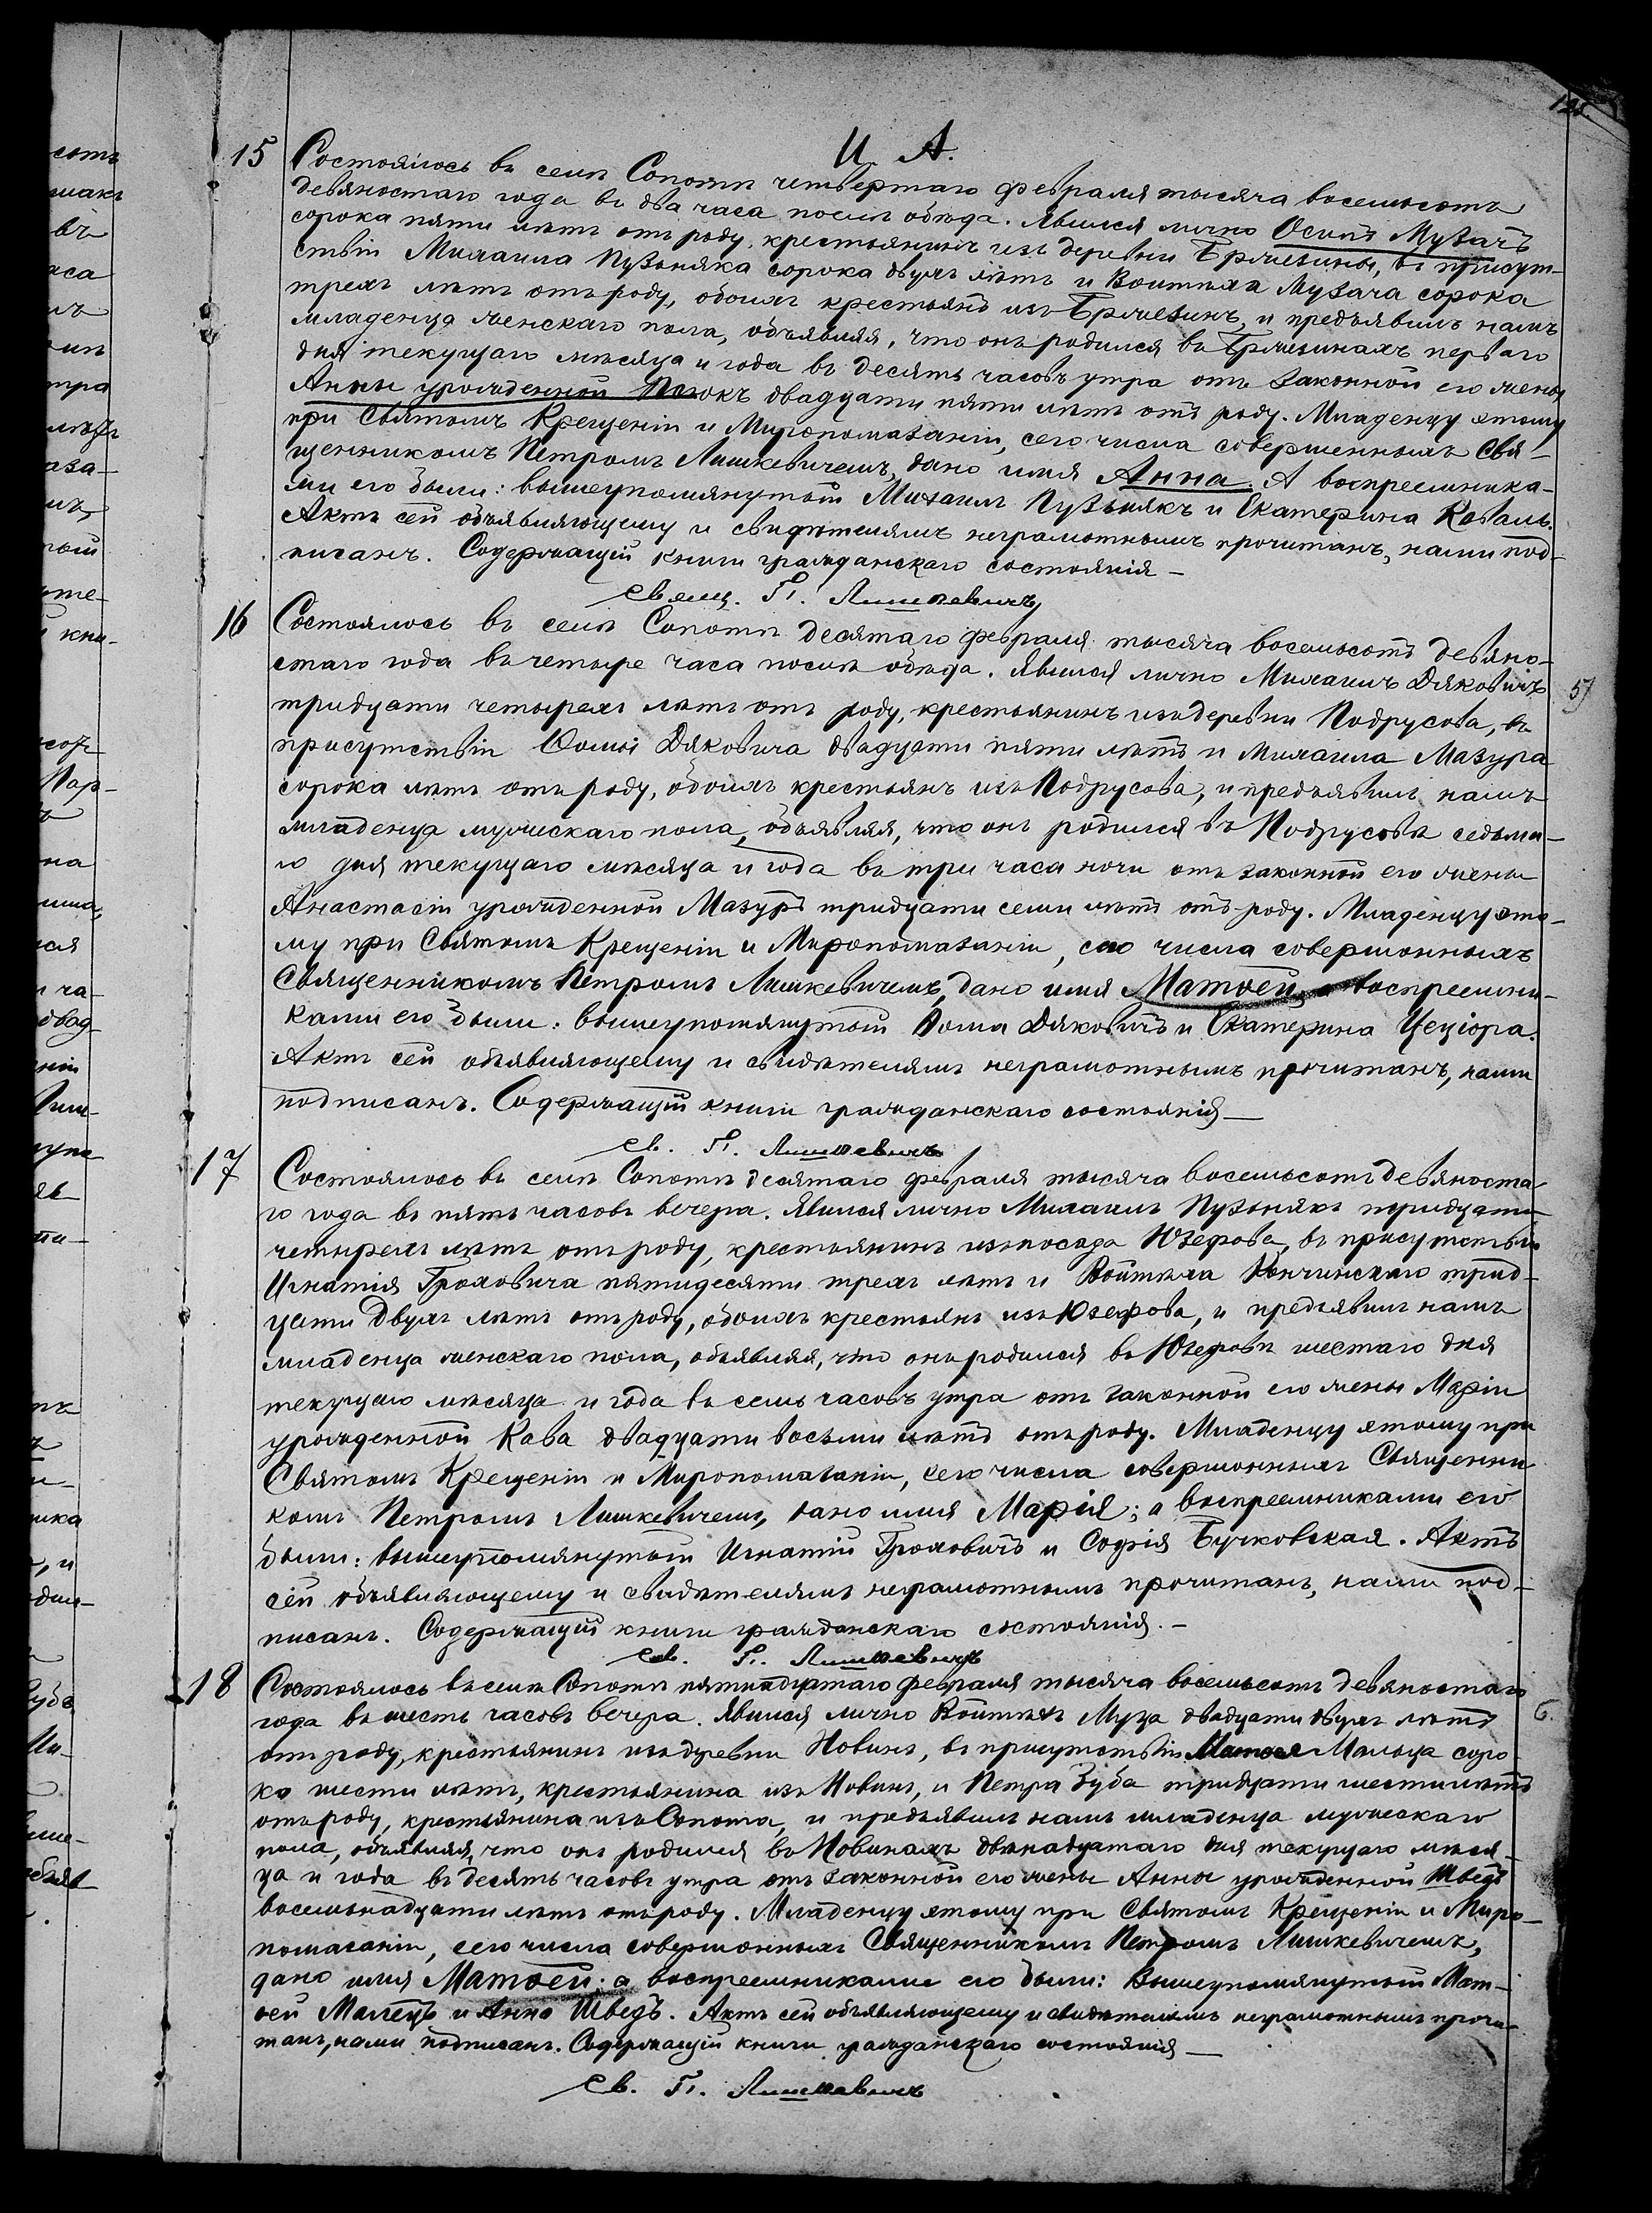 125.
И. А.
15 Состоялось въ селѣ Сопотѣ четвертаго февраля тысяча восемьсотъ
девяностаго года въ два часа послѣ обѣда. Явился лично Осипъ Музачъ
сорока пяти лѣтъ отъ роду, крестьянинъ изъ деревни Бржезины, въ присут-
ствіи Михаила Пузьняка сорока двухъ лѣтъ и Войтѣха Музача сорока
трехъ лѣтъ отъ роду, обоихъ крестьянъ изъ Бржезинъ, и предъявилъ намъ
младенца женскаго пола, объявляя, что онъ родился въ Бржезинахъ перваго
дня текущаго мѣсяца и года въ десять часовъ утра отъ законной его жены
Анны урожденной двадцати пяти лѣтъ отъ роду. Младенцу этому
при Святомъ Крещеніи и Миропомазаніи, сего числа совершенныхъ Свя-
щенникомъ Петромъ Лишкевичемъ, дано имя Анна. А воспреемника-
ми его были: вышеупомянутый Михаилъ Пузьнякъ и Екатерина Коваль.
Актъ сей объявляющему и свидѣтелямъ неграмотнымъ прочитанъ, нами под-
писанъ. Содержащій книги гражданскаго состоянія —
Свящ. П. Лишкевичъ
16 Состоялось въ селѣ Сопотѣ десятаго февраля тысяча восемьсотъ девяно-
стаго года въ четыре часа послѣ обѣда. Явился лично Михаилъ Дяковичъ
тридцати четырехъ лѣтъ отъ роду, крестьянинъ изъ деревни Подрусова, въ
присутствіи Ѳомы Дяковича двадцати пяти лѣтъ и Михаила Мазура
сорока лѣтъ отъ роду, обоихъ крестьянъ изъ Подрусова, и предъявилъ намъ
младенца мужескаго пола, объявляя, что онъ родился въ Подрусовѣ седьма-
го дня текущаго мѣсяца и года въ три часа ночи отъ законной его жены
Анастасіи урожденной Мазуръ тридцати семи лѣтъ отъ роду. Младенцу это-
му при Святомъ Крещеніи и Миропомазаніи, сего числа совершонныхъ
Священникомъ Петромъ Лишкевичемъ, дано имя Матѳей, а воспреемни-
ками его были: вышеупомянутый Ѳома Дяковичъ и Екатерина Цеціора.
Актъ сей объявляющему и свидѣтелямъ неграмотнымъ прочитанъ, нами
подписанъ. Содержащій книги гражданскаго состоянія —
Св. П. Лишкевичъ
17 Состоялось въ селѣ Сопотѣ десятаго февраля тысяча восемьсотъ девяноста-
го года въ пять часовъ вечера. Явился лично Михаилъ Пузьнякъ тридцати
четырехъ лѣтъ отъ роду, крестьянинъ изъ посада Юзефова, въ присутствіи
Игнатія Гроховича пятидесяти трехъ лѣтъ и Войтѣха Кончинскаго трид-
цати двухъ лѣтъ отъ роду, обоихъ крестьянъ изъ Юзефова, и предъявилъ намъ
младенца женскаго пола, объявляя, что онъ родился въ Юзефовѣ шестаго дня
текущаго мѣсяца и года въ семь часовъ утра отъ законной его жены Маріи
урожденной Кава двадцати восьми лѣтъ отъ роду. Младенцу этому при
Святомъ Крещеніи и Миропомазаніи, сего числа совершонныхъ Священни-
комъ Петромъ Лишкевичемъ, дано имя Марія; а воспреемниками его
были: вышеупомянутый Игнатій Гроховичъ и Софія Бучковская. Актъ
сей объявляющему и свидѣтелямъ неграмотнымъ прочитанъ, нами под-
писанъ. Содержащій книги гражданскаго состоянія. —
Св. П. Лишкевичъ
18 Состоялось въ селѣ Сопотѣ пятнадцатаго февраля тысяча восемьсотъ девяностаго
года въ шесть часовъ вечера. Явился лично Войтѣхъ Муца двадцати двухъ лѣтъ
отъ роду, крестьянинъ изъ деревни Новинъ, въ присутствіи Матѳея Мальца соро-
ка шести лѣтъ, крестьянина изъ Новинъ, и Петра Зуба тридцати шести лѣтъ
отъ роду, крестьянина изъ Сопота, и предъявилъ намъ младенца мужескаго
пола, объявляя, что онъ родился въ Новинахъ двѣнадцатаго дня текущаго мѣся-
ца и года въ десять часовъ утра отъ законной его жены Анны урожденной Шведъ
восемьнадцати лѣтъ отъ роду. Младенцу этому при Святомъ Крещеніи и Миро-
помазаніи, сего числа совершонныхъ Священникомъ Петромъ Лишкевичемъ,
дано имя Матѳей; а воспреемниками его были: Вышеупомянутый Мат-
ѳей Малецъ и Анна Шведъ. Актъ сей объявляющему и свидѣтелямъ неграмотнымъ прочи-
танъ, нами подписанъ. Содержащій книги гражданскаго состоянія —
Св. П. Лишкевичъ